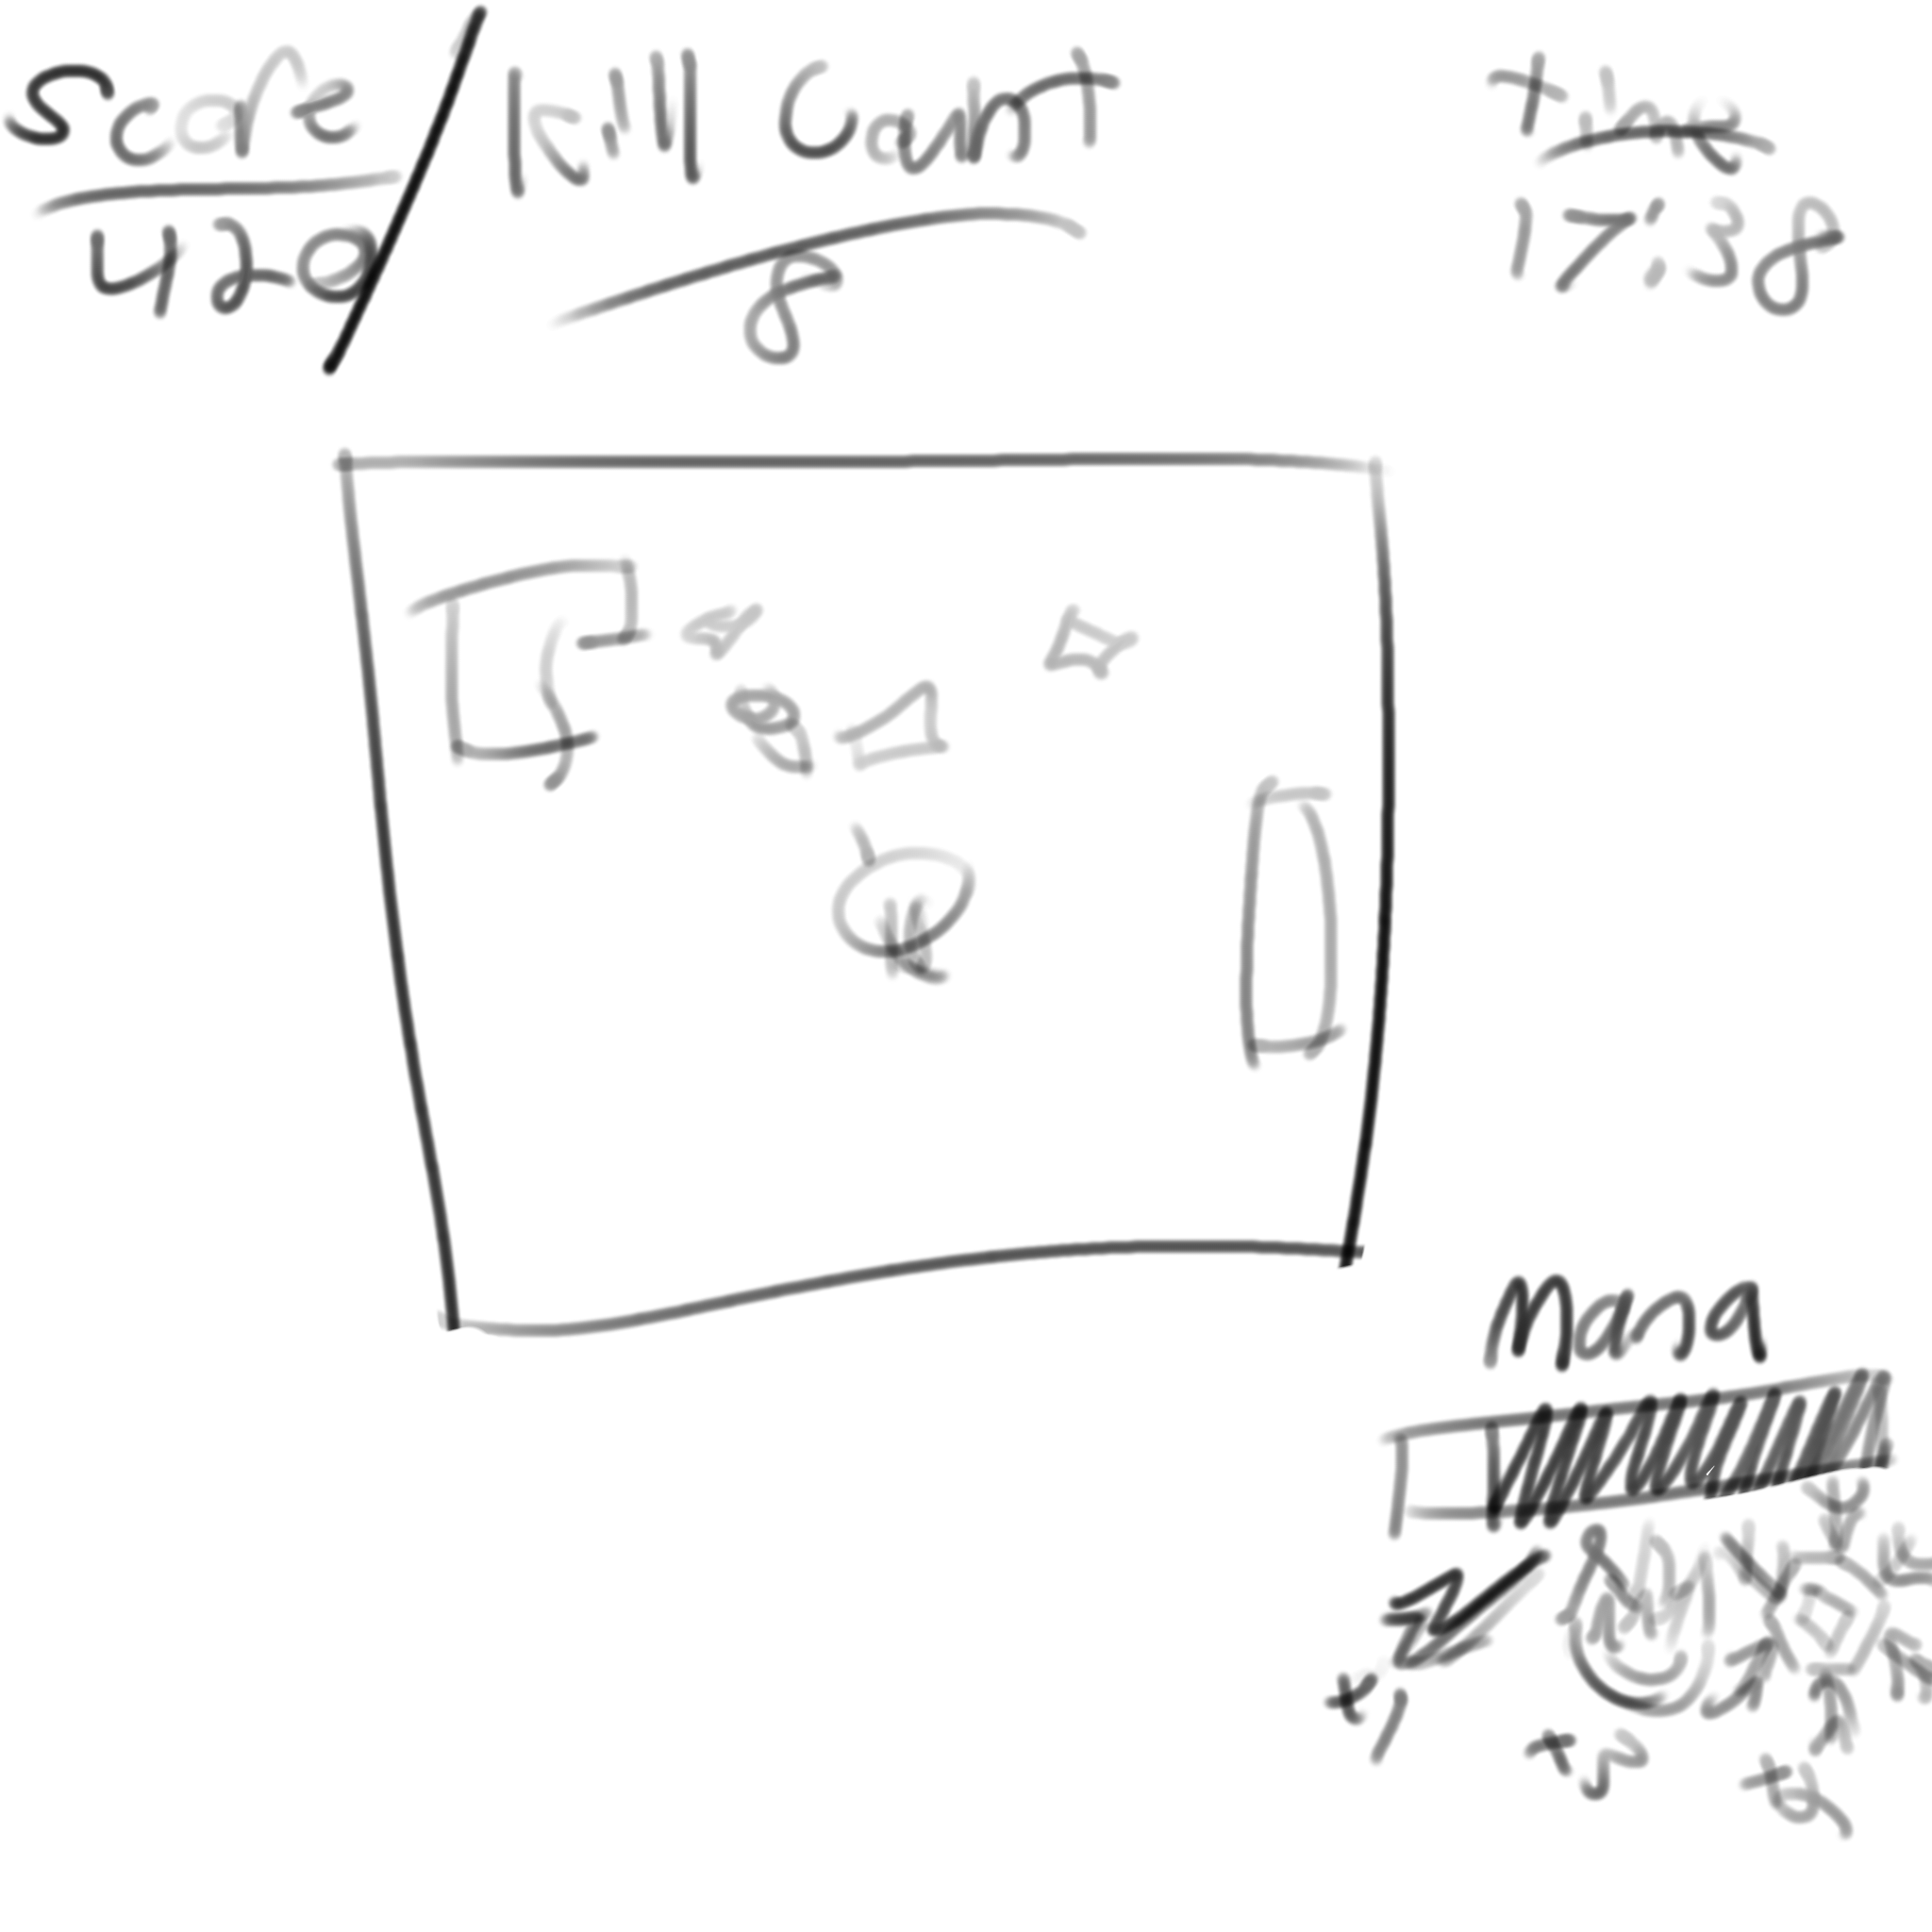 Score / Kill Count
420
8
time
17:38
Mana
x1
x3
x2